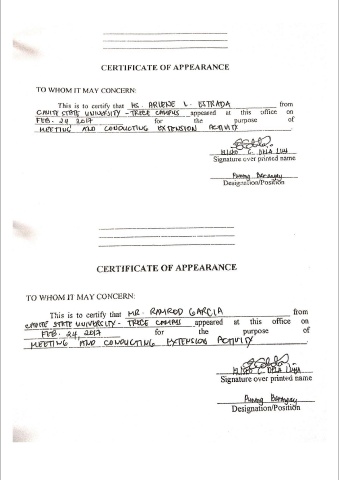 CERTIFICATE OF APPEARANCE
TO WHOM IT MAY CONCERN:
This is to certify that MS. ARLENE L. ESTRADA from
CAVITE STATE UNIVERSITY - TRECE CAMPUS appeared at this office on
FEB. 24, 2017 for the purpose of
MEETING AND CONDUCTING EXTENSION ACTIVITY.
C. DELA
Signature over printed name
Punong Barangay
Designation/Position
CERTIFICATE OF APPEARANCE
TO WHOM IT MAY CONCERN:
This is to certify that MR. RAMROD GARCIA from
CAVITE STATE UNIVERSITY - TRECE CAMPUS appeared at this office on
FEB. 24, 2017 for the purpose of
MEETING AND CONDUCTING EXTENSION ACTIVITY.
C. DELA
Signature over printed name
Punong Barangay
Designation/Position